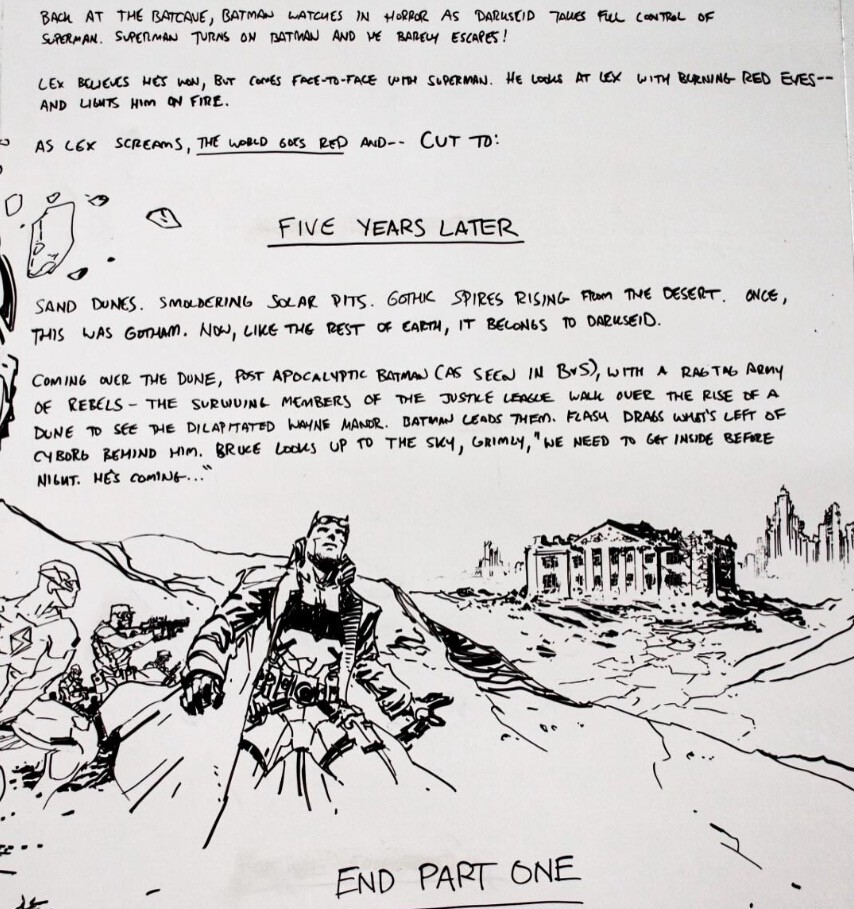 BACK AT THE BATCAVE, BATMAN WATCHES IN HORROR AS DARKSEID TAKES FULL CONTROL OF
SUPERMAN. SUPERMAN TURNS ON BATMAN AND HE BARELY ESCAPES!
LEX BELIEVES HE'S WON, BUT COMES FACE-TO-FACE WITH SUPERMAN. HE LOOKS AT LEX WITH BURNING RED EYES--
AND LIGHTS HIM ON FIRE.
AS LEX SCREAMS, THE WORLD GOES RED AND-- CUT TO:
FIVE YEARS LATER
SAND DUNES. SMOLDERING SOLAR PITS. GOTHIC SPIRES RISING FROM THE DESERT. ONCE,
THIS WAS GOTHAM. NOW, LIKE THE REST OF EARTH, IT BELONGS TO DARKSEID.
COMING OVER THE DUNE, POST APOCALYPTIC BATMAN (AS SEEN IN BvS), WITH A RAGTAG ARMY
OF REBELS - THE SURVIVING MEMBERS OF THE JUSTICE LEAGUE WALK OVER THE RISE OF A
DUNE TO SEE THE DILAPITATED WAYNE MANOR. BATMAN LEADS THEM. FLASH DRAGS WHAT'S LEFT OF
CYBORG BEHIND HIM. BRUCE LOOKS UP TO THE SKY, GRIMLY, "WE NEED TO GET INSIDE BEFORE
NIGHT. HE'S COMING..."
END PART ONE